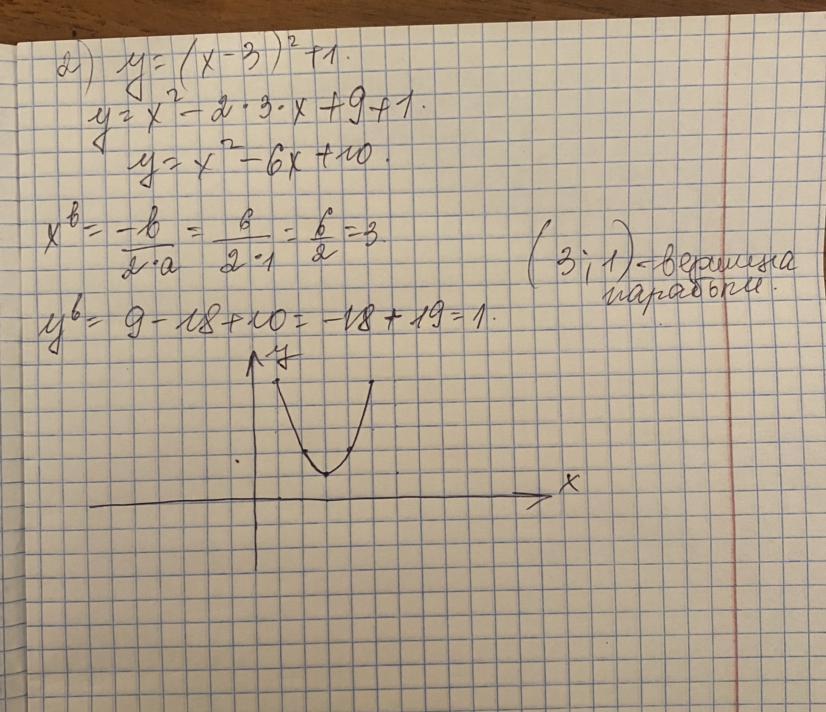 2) y = (x - 3)² + 1.
y = x² - 2·3·x + 9 + 1.
y = x² - 6x + 10.
xᵇ = -b/2·a = 6/2·1 = 6/2 = 3
(3; 1) - вершина
параболы.
yᵇ = 9 - 18 + 10 = -18 + 19 = 1.
y
x